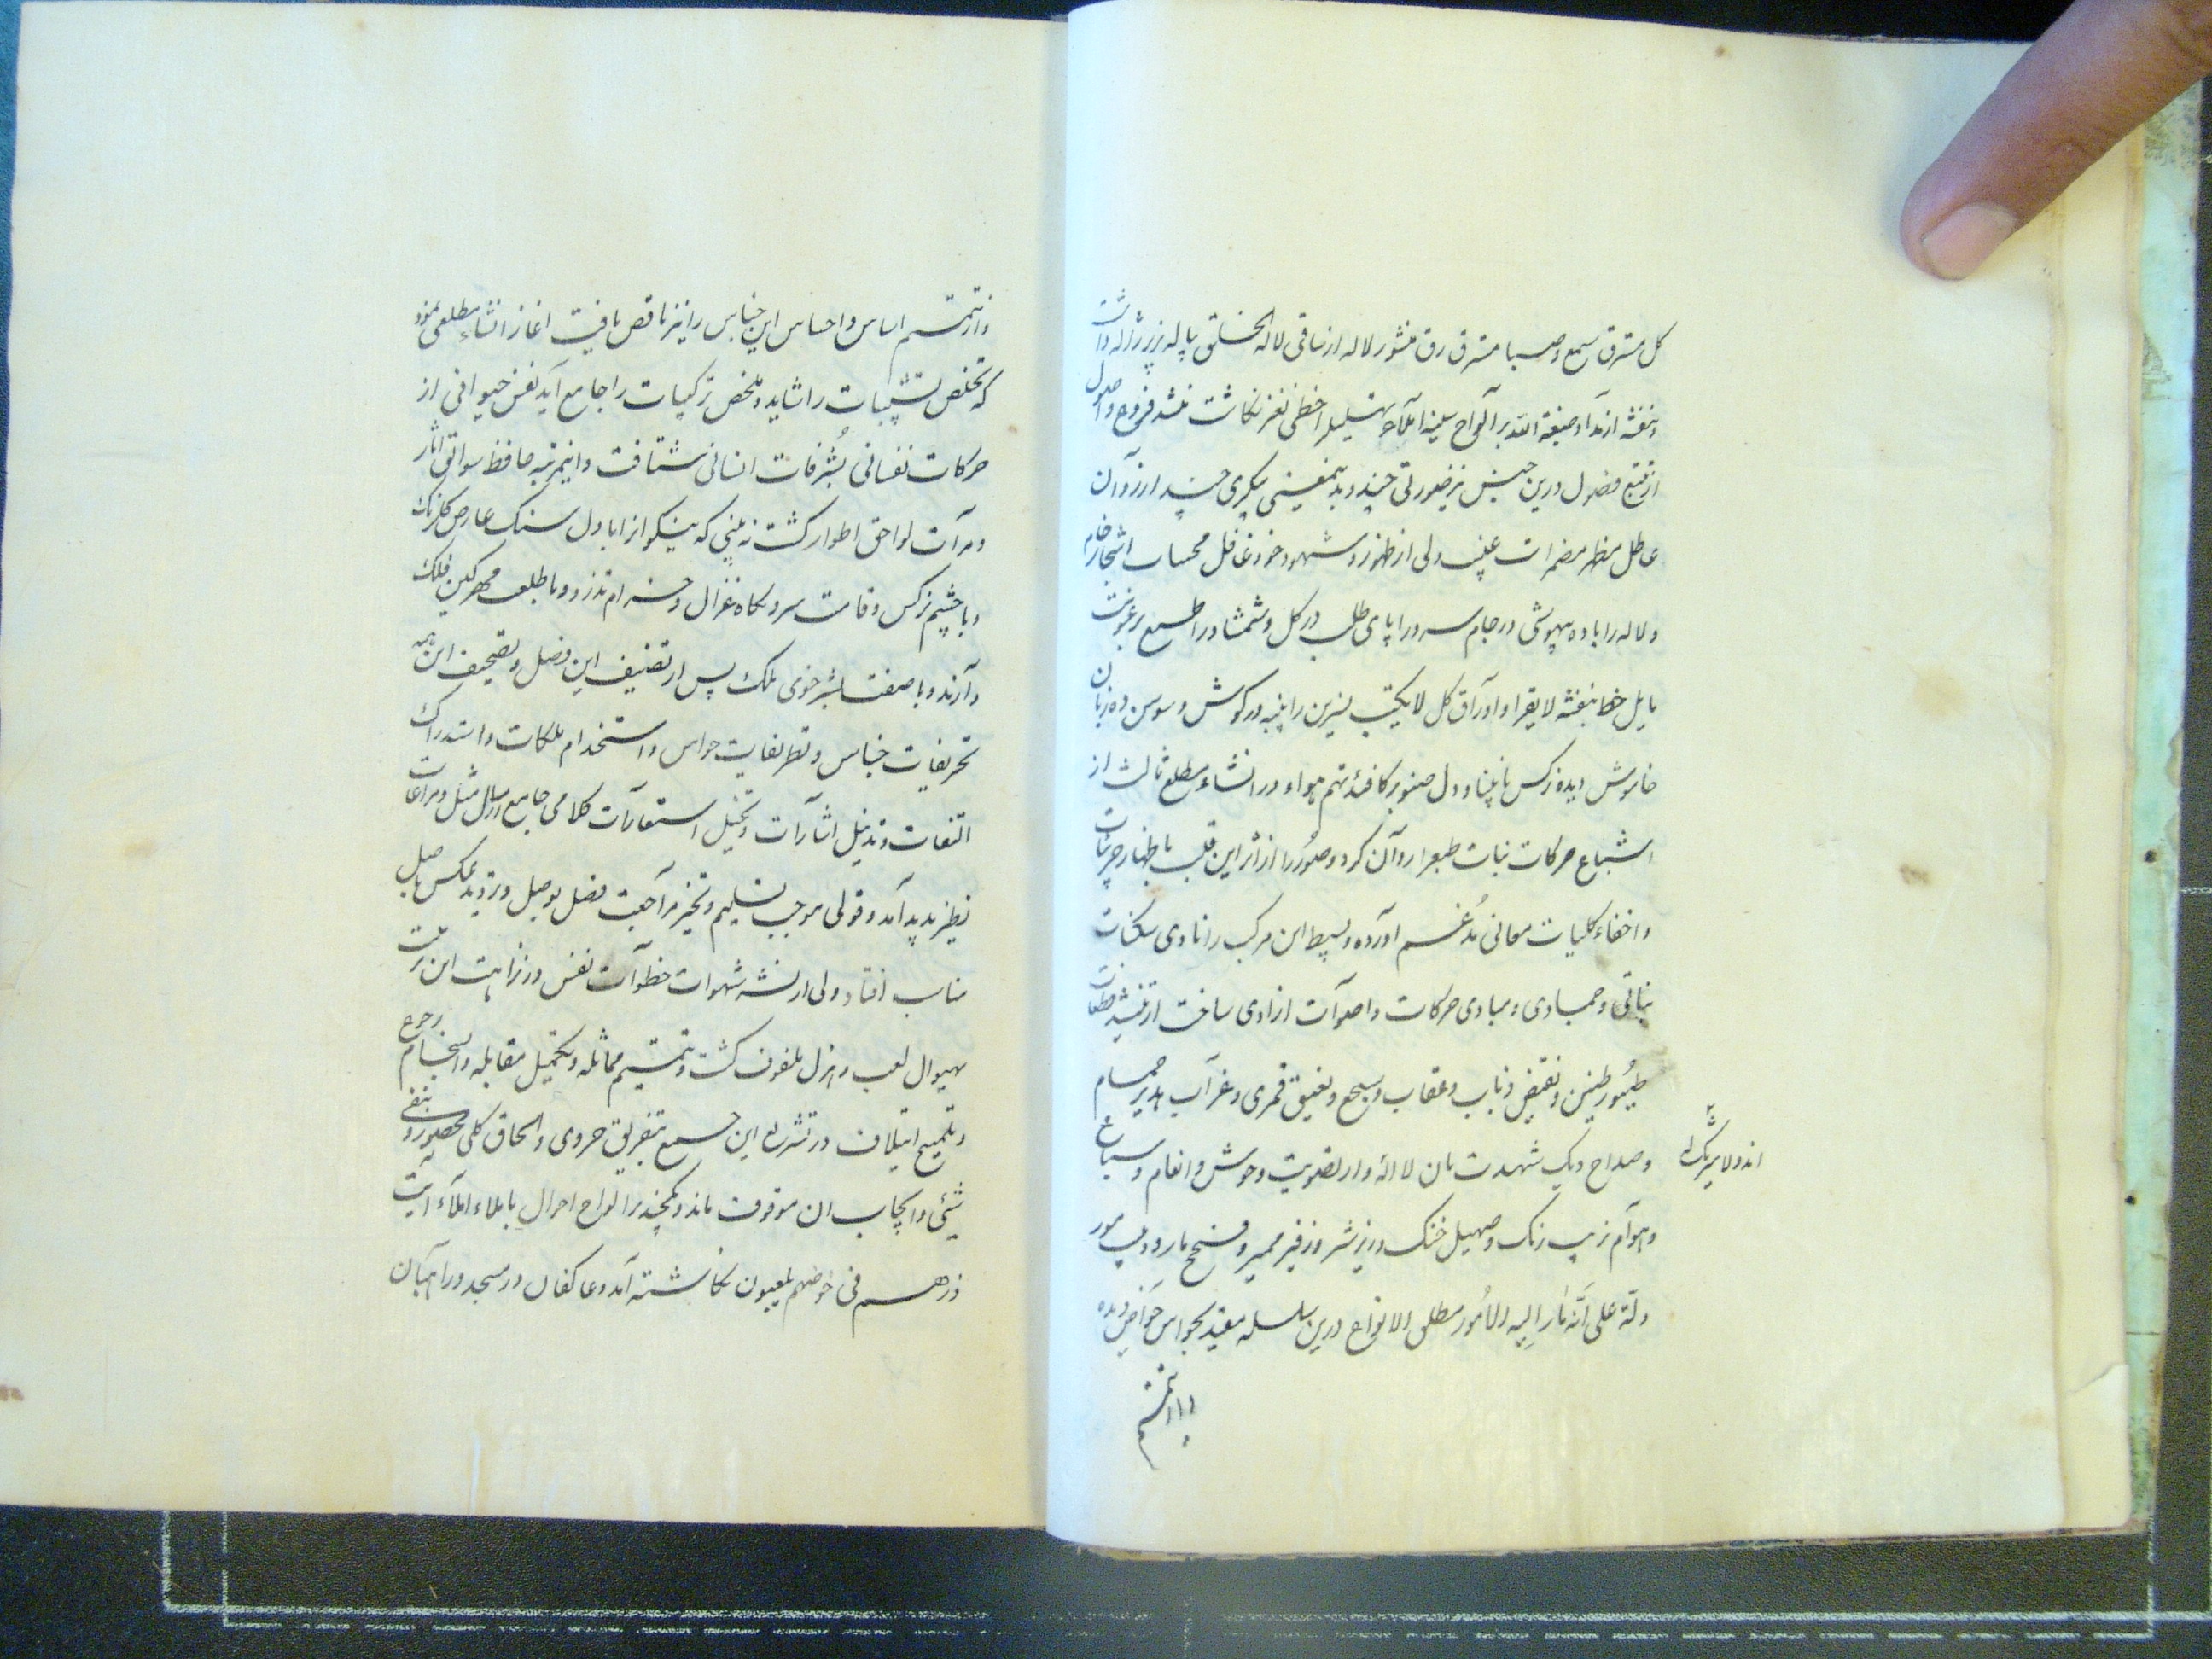 کل مسترق سمع و صبا مسترق رق منشور لاله از ساقی لاله الخلق پیاله پر ژاله داشت
و بنفشه از مداد صبغة الله بر الواح سلیخه خطی نغز نگاشت نشد فروع و اصول
از تتبع فصول درین جنبش نیز صورتی چند و بدینمعینی پیکری چند ارزدان
عاطل مظهر مضمرات غیب ولی از ظهور و شهود خود غافل محسات اشجار خام
و لاله را باده بیهوشی در جام سرو را پای طلب در کل و شمشاد را طبع رعونت
مایل خط بنفشه لا یقرا و اوراق کل لا یکتب نسرین را پنبه در کوش و سوسن ده زبان
خاموش دیده نرکس نابینا و دل صنوبر کافئدتهم هواء در انشاء مطلع ثالث از
اشباع حرکات نبات طبع را روان کرد و صور را از اثر این قلب باظهار جزئیات
و اخفاء کلیات معانی مدغم آورده و بسیط این مرکب را نادی سکنات
نباتی و جمادی و مبادی حرکات و اصوات ارادی ساخت از نغمات
طیور طنین و نقیض ذباب و عقاب و سجع و نغیق قمری و غراب هدیر حمام
و صداح دیک شهدت بان لا اله و از تصویت وحوش و انعام و سباع
اند ولا شریک له
و هوام زئیر و صهیل خنک و زفیر حمیر و فحیح مار و دبیب مور
دلة علی انه نار الیه الامور مطلق الانواع درین سلسله مقید بحواس خواص دیده
و از تتمیم
و از تتمیم اساس و احساس این جناس را نیز ناقص یافت اغاز انشاء مطلعی نمود
که تخلص تشبیبات را شاید و ملخص ترکیبات را جامع آید نفس حیوانی از
حرکات نفسانی بشرفات انسانی شتافت و اینمرتبه حافظ سوابق آثار
و مرآت لواحق اطوار کشت نه بینی که نیکوانرا با دل سنک عارض کلرنک
و با چشم نرکس و قامت سرو نکاه غزال و خرام تذرو و با طلعت مهر کین فلک
دارند و با صفت بشر خوی ملک پس از تصنیف این فصل و تصحیف این همه
تحریفات جناس و تطریفات حواس و استخدام ملکات و استدراک
التفات و تذییل اشارات و تخییل استعارات کلامی جامع ارسال مثل و مراعات
نظیر پدید آمد و قولی موجب تسلیم و تخییر مراجعت فصل بوصل و تردید عکس باصل
مناسب افتاد ولی از نشر شهوات خطوات نفس در نزاهت این مرتبت
بهیوال لعب و هزل ملفوف کشت و تتمیم مماثله و تکمیل مقابله و انسجام رجوع
و تلمیح ایتلاف در تشریع این جمع بتفریق حروی و الحاق کلی محصور و بنفی
شیئی و ایجاب ان موقوف ماند و یکچند بر الواح احوال باملاء املاء آیت
ذرهم فی خوضهم یلعبون نکاشته آمد و عاکفان در مسجد و راهبان